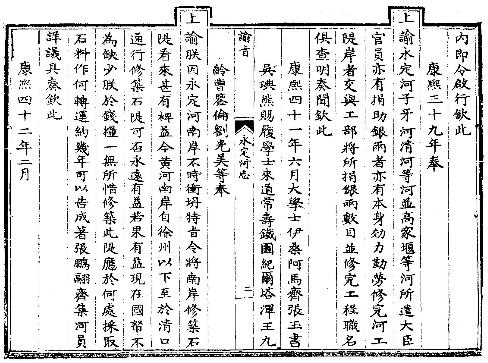 內即令啟行欽此
康熙三十九年奉
上諭永定河子牙河清河等河並高家堰等河所遣大臣
官員亦有捐助銀兩者亦有本身効力勤勞修完河工
隄岸者交與工部將所捐銀兩數目並修完工程職名
俱查明奏聞欽此
康熙四十一年六月大學士伊桑阿馬齊張玉書
吳琠熊賜履學士來道常壽鐵圖紀爾塔渾王九
永定河志
齡曹鑒倫劉光美等奉
諭旨
上諭朕因永定河南岸不時衝坍特旨令將南岸修築石
隄看來甚有裨益今黃河南岸自徐州以下至於清口
通行修築石隄可石永遠有益若果有益現在國帑不
為缺少朕於錢糧一無所惜修築此隄應於何處採取
石料作何轉運納幾年可以告成著張鵬翮齊集河員
詳議具奏欽此
康熙四十二年二月